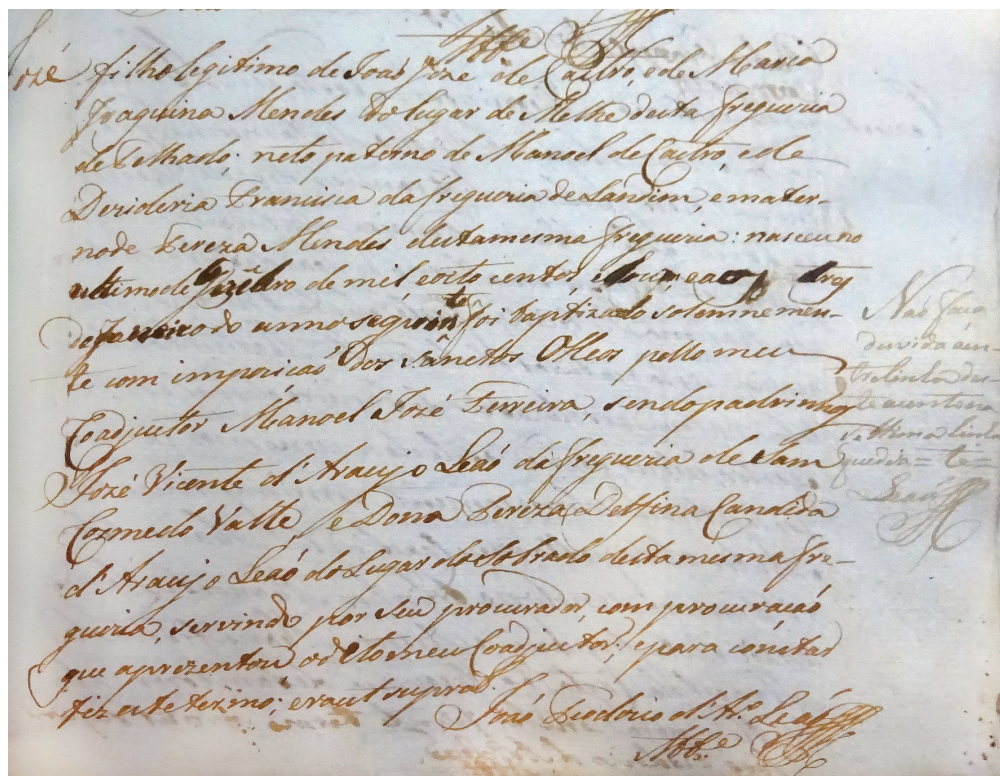 Abb.e
Jozé filho legitimo de Joaõ Jozé de Castro, e de Maria
Joaquina Mendes do lugar de Melhe desta freguezia
de Telhado; neto paterno de Manoel de Castro, e de
Dezideria Francisca da freguezia de Landim, e mater-
no de Tereza Mendes desta mesma freguezia: nasceu no
ultimo de Dezẽbro de mil, e oito centos, e hum, e aos tres
de Janeiro do anno seguinte foi baptizado solemnemen-
te com impoziçaõ dos Sanctos Oleos pello meu
Coadjuctor Manoel Jozé Ferreira, sendo padrinhos
Jozé Vicente d'Araujo Leaõ da freguezia de Sam
Cozme do Valle, e Dona Tereza Delfina Candida
d'Araujo Leaõ do Lugar do Sobrado desta mesma fre-
guezia, servindo por seu procurador, com procuraçaõ
que aprezentou o dito meu Coadjuctor; e para constar
fiz este termo; era ut supra.
Joaõ Teodorio d'Ar.o Leaõ
Abb.e
Naõ faça
duvida a en-
trelinha des-
te assento na
settima linha
que diz = te =
Leaõ